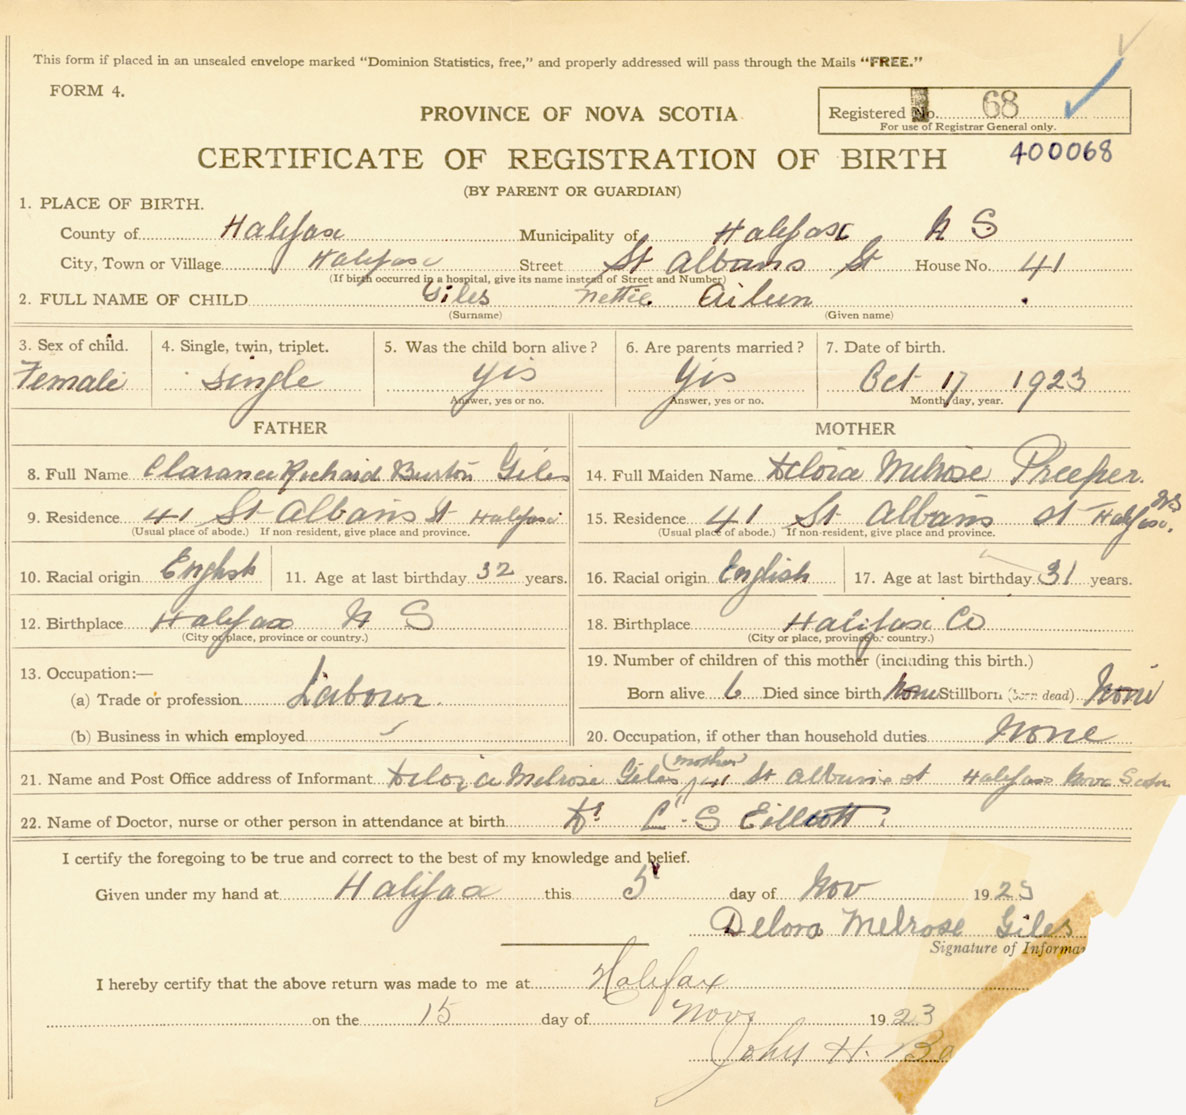 This form if placed in an unsealed envelope marked "Dominion Statistics, free," and properly addressed will pass through the Mails "FREE."
FORM 4.
PROVINCE OF NOVA SCOTIA
Registered No. 68
For use of Registrar General only.
CERTIFICATE OF REGISTRATION OF BIRTH
400068
(BY PARENT OR GUARDIAN)
1. PLACE OF BIRTH.
County of Halifax Municipality of Halifax N S
City, Town or Village Halifax Street St Albans St House No. 41
(If birth occurred in a hospital, give its name instead of Street and Number)
2. FULL NAME OF CHILD Giles Nettie Aileen
(Surname) (Given name)
3. Sex of child. 4. Single, twin, triplet. 5. Was the child born alive? 6. Are parents married? 7. Date of birth.
Female Single Yes Yes Oct 17 1923
Answer, yes or no. Answer, yes or no. Month, day, year.
FATHER MOTHER
8. Full Name Clarance Richard Burton Giles 14. Full Maiden Name Delora Melrose Preeper.
9. Residence 41 St Albans St Halifax 15. Residence 41 St Albans St Halifax, NS
(Usual place of abode.) If non-resident, give place and province. (Usual place of abode.) If non-resident, give place and province.
10. Racial origin English 11. Age at last birthday 32 years. 16. Racial origin English 17. Age at last birthday 31 years.
12. Birthplace Halifax N S 18. Birthplace Halifax Co
(City or place, province or country.) (City or place, province or country.)
13. Occupation:— 19. Number of children of this mother (including this birth.)
(a) Trade or profession Labour. Born alive 6 Died since birth None Stillborn (born dead) None
(b) Business in which employed 20. Occupation, if other than household duties None
21. Name and Post Office address of Informant Delora Melrose Giles (mother) 41 St Albans st Halifax Nova Scotia
22. Name of Doctor, nurse or other person in attendance at birth Dr L S
I certify the foregoing to be true and correct to the best of my knowledge and belief.
Given under my hand at Halifax this 5 day of Nov 1923
Delora Melrose Giles
Signature of Informa
I hereby certify that the above return was made to me at Halifax
on the 15 day of Nov 1923
John H.